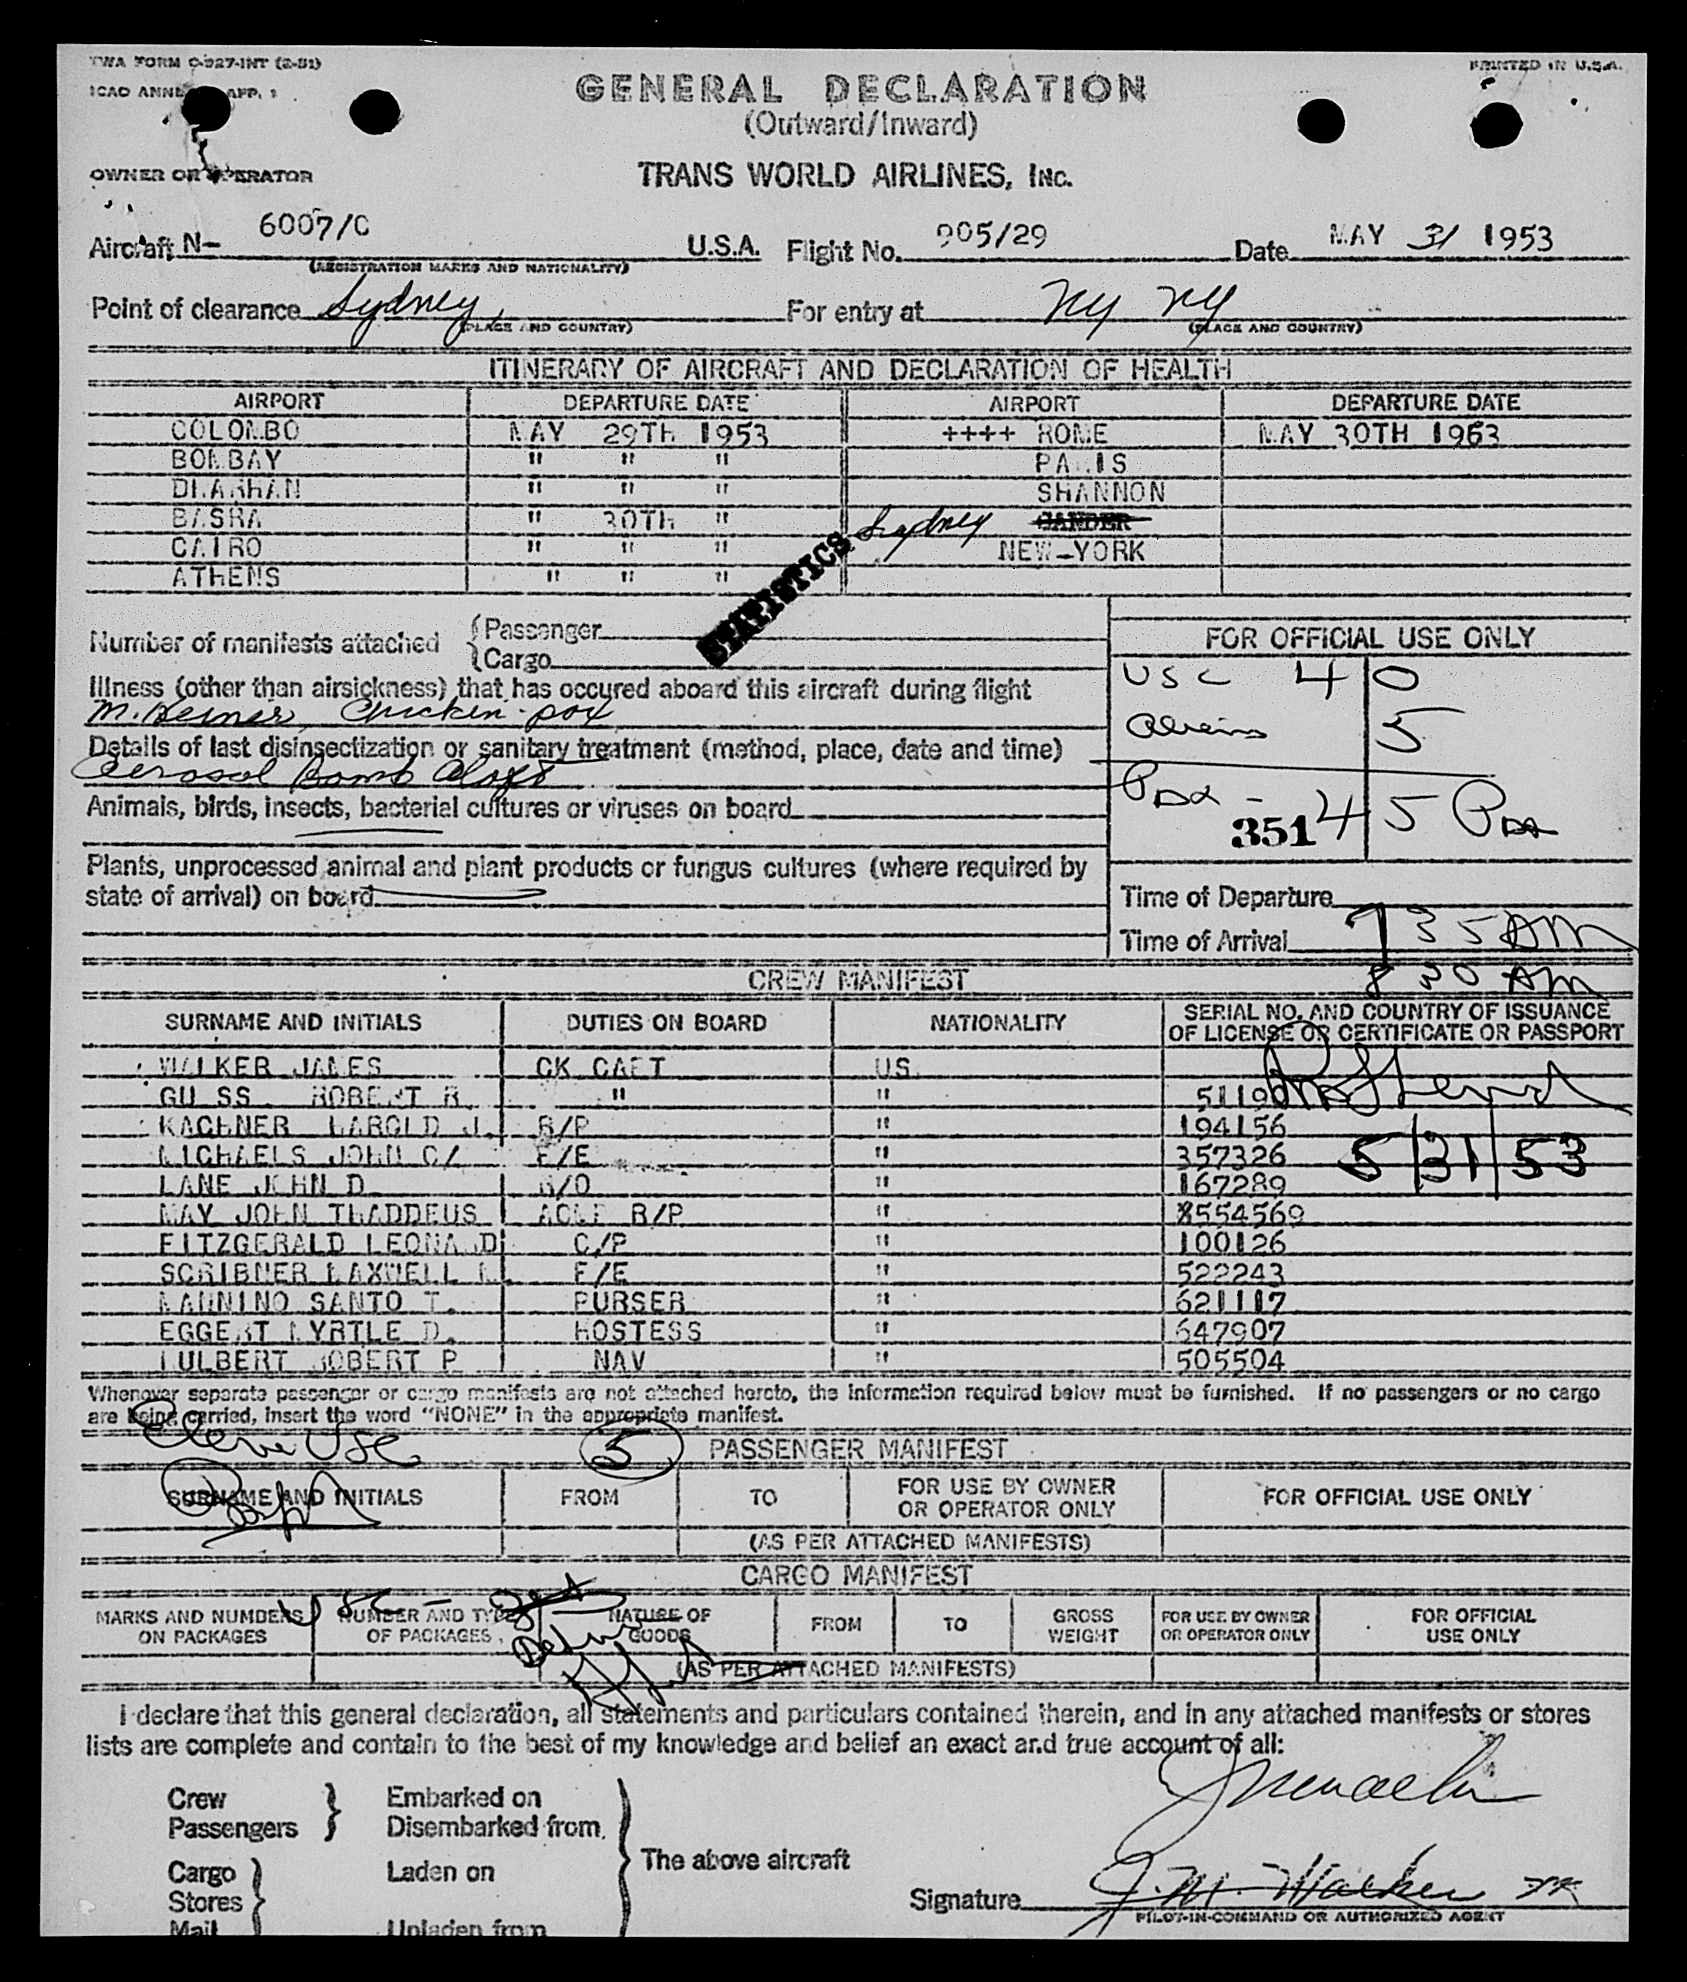 TWA FORM C-927-INT (2-51)
PRINTED IN U.S.A.
ICAO APP. 1
GENERAL DECLARATION
(Outward/Inward)
OWNER OR OPERATOR
TRANS WORLD AIRLINES, INC.
Aircraft N- 6007/C U.S.A. Flight No. 905/29 Date MAY 31 1953
(REGISTRATION MARKS AND NATIONALITY)
Point of clearance Sydney, For entry at NY NY
(PLACE AND COUNTRY) (PLACE AND COUNTRY)
ITINERARY OF AIRCRAFT AND DECLARATION OF HEALTH
AIRPORT DEPARTURE DATE AIRPORT DEPARTURE DATE
COLOMBO MAY 29TH 1953 ++++ ROME MAY 30TH 1953
BOMBAY " " " PARIS
DHARHAN " " " SHANNON
BASRA " 30TH " Sydney GANDER
CAIRO " " " NEW-YORK
ATHENS " " "
STATISTICS
Number of manifests attached { Passenger
Cargo
FOR OFFICIAL USE ONLY
USC 40
Aliens 5
351 45
Illness (other than airsickness) that has occured aboard this aircraft during flight
Chicken-pox
Details of last disinsectization or sanitary treatment (method, place, date and time)
Aerosol Bomb Aloft
Animals, birds, insects, bacterial cultures or viruses on board
Plants, unprocessed animal and plant products or fungus cultures (where required by
state of arrival) on board
Time of Departure
Time of Arrival 7 35 AM
8 30 AM
CREW MANIFEST
SURNAME AND INITIALS DUTIES ON BOARD NATIONALITY SERIAL NO. AND COUNTRY OF ISSUANCE
OF LICENSE OR CERTIFICATE OR PASSPORT
WALKER JAMES CK CAPT US
GUSS ROBERT R. " " 51190
KACHNER HAROLD J. R/P " 194156
MICHAELS JOHN C/ F/E " 357326
LANE JOHN D R/O " 167289
MAY JOHN THADDEUS R/P " 8554569
FITZGERALD LEONARD C/P " 100126
SCRIBNER MAXWELL F/E " 522243
MANNINO SANTO T. PURSER " 621117
EGGERT MYRTLE D. HOSTESS " 647907
HULBERT ROBERT P NAV " 505504
5/31/53
Whenever separate passenger or cargo manifests are not attached hereto, the information required below must be furnished. If no passengers or no cargo
are being carried, insert the word "NONE" in the appropriate manifest.
Eleven USC 5
PASSENGER MANIFEST
SURNAME AND INITIALS FROM TO FOR USE BY OWNER
OR OPERATOR ONLY FOR OFFICIAL USE ONLY
(AS PER ATTACHED MANIFESTS)
CARGO MANIFEST
MARKS AND NUMBERS
ON PACKAGES NUMBER AND TYPE
OF PACKAGES NATURE OF
GOODS FROM TO GROSS
WEIGHT FOR USE BY OWNER
OR OPERATOR ONLY FOR OFFICIAL
USE ONLY
(AS PER ATTACHED MANIFESTS)
I declare that this general declaration, all statements and particulars contained therein, and in any attached manifests or stores
lists are complete and contain to the best of my knowledge and belief an exact and true account of all:
Crew } Embarked on
Passengers Disembarked from
The above aircraft
Cargo } Laden on
Stores
Mail Unladen from
Signature J. M. Walker
PILOT-IN-COMMAND OR AUTHORIZED AGENT